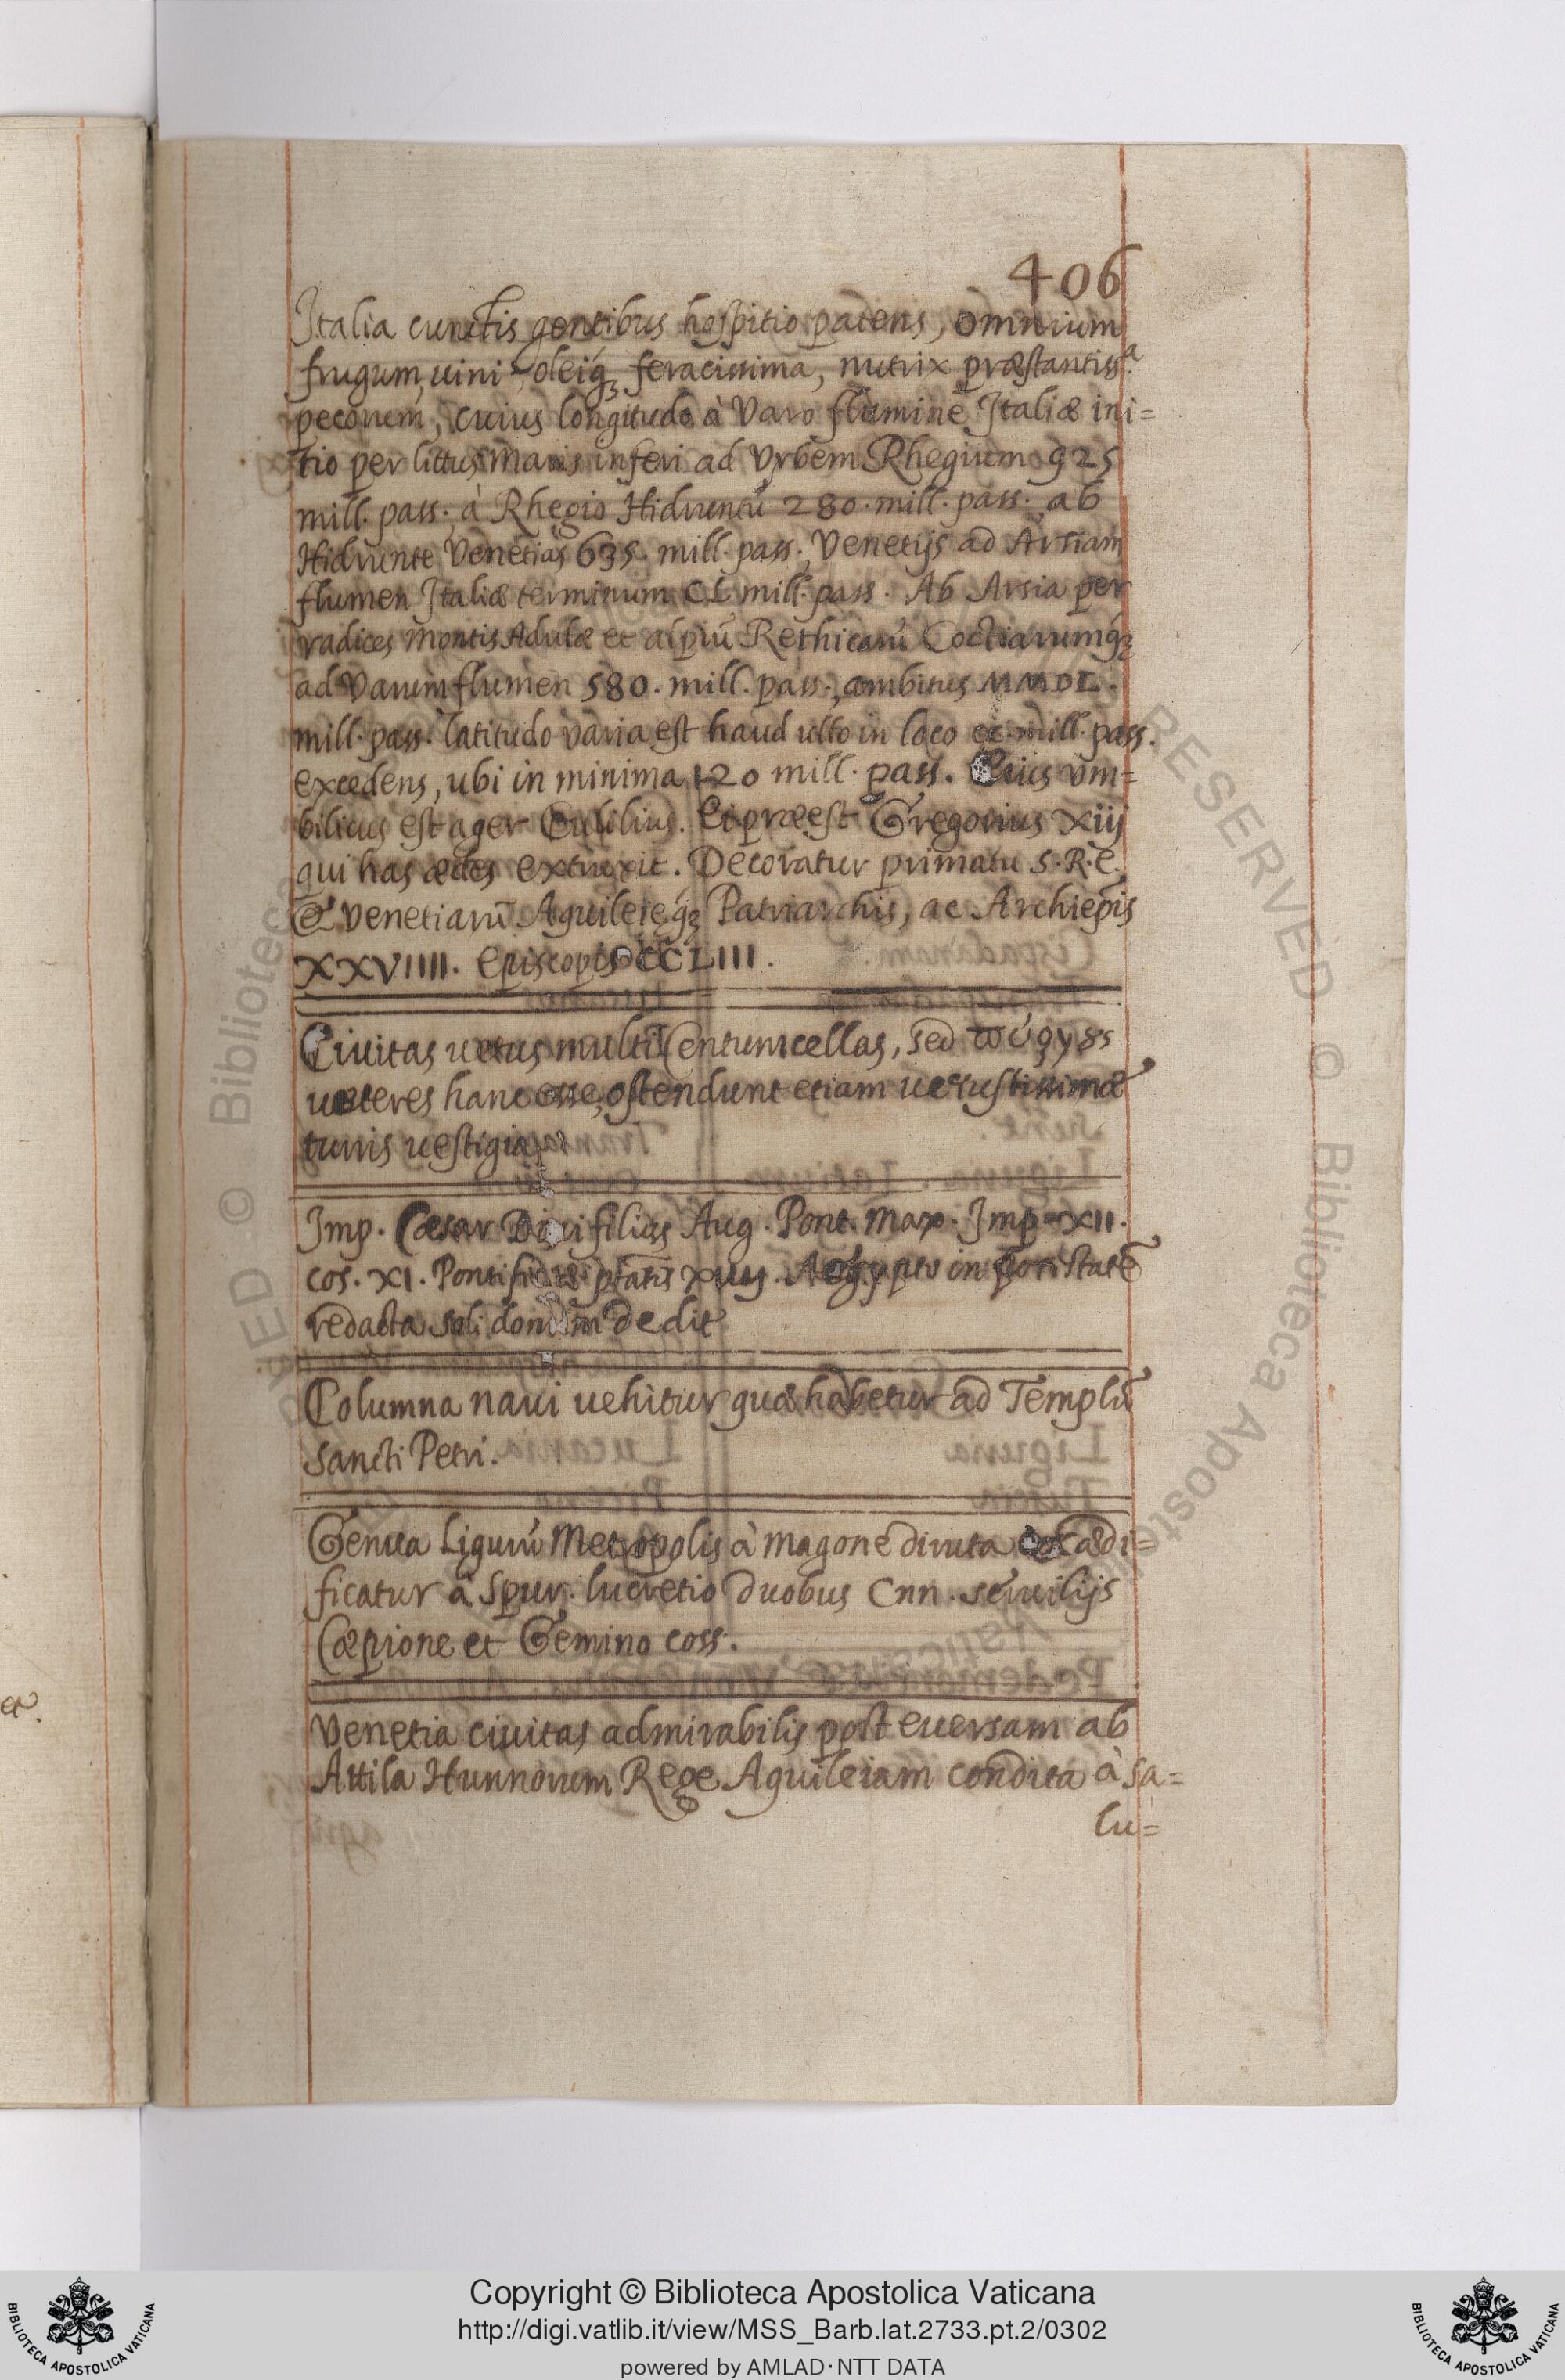 406
Italia cunctis gentibus hospitio patens, omnium
frugum, uini, oleiq́ꝫ feracissima, nutrix præstantiss.ᵃ
pecorum, cuius longitudo à Varo flumine Italiæ ini=
tio per littus maris inferi ad Vrbem Rhegium 925
mill. pass., à Rhegio Hidruntũ 280. mill. pass., ab
Hidrunte Venetias 635. mill. pass., Venetijs ad Arsiam
flumen Italiæ terminum CL mill. pass. Ab Arsia per
radices montis Adulæ et alpiũ Rethicarũ Coctiarumq́ꝫ
ad Varum flumen 580. mill. pass., ambitus MMDL.
mill. pass. latitudo varia est haud ullo in loco mill. pass.
excedens, ubi in minima 120 mill. pass. Eius vm=
bilicus est ager Cutilius. Ei præest Gregorius Xiij
qui has ædes extruxit. Decoratur primatu S. R. E.
& Venetiarũ Aquileieq́ꝫ Patriarchis, ac Archiepĩs
XXVIIII. Episcopis CCLIII.
Ciuitas uetus multi Centumcellas, sed
ueteres hanc esse, ostendunt etiam uetustissimæ
turris uestigia
Imp. Cæsar Diui filius Aug. Pont. Max. Imp. XII.
cos. XI. Aegypto in potestatẽ
redacta soli donum dedit
Columna naui uehitur quæ habetur ad Templũ
Sancti Petri.
Genua Ligurũ Metropolis à Magone diruta ædi=
ficatur à Spur. lucretio duobus Cnn. Seruilijs
Cæpione et Gemino coss.
Venetia ciuitas admirabilis post euersam ab
Attila Hunnorum Rege Aquileiam condita à sa=
lu=
Copyright © Biblioteca Apostolica Vaticana
http://digi.vatlib.it/view/MSS_Barb.lat.2733.pt.2/0302
powered by AMLAD·NTT DATA
BIBLIOTECA APOSTOLICA VATICANA
BIBLIOTECA APOSTOLICA VATICANA